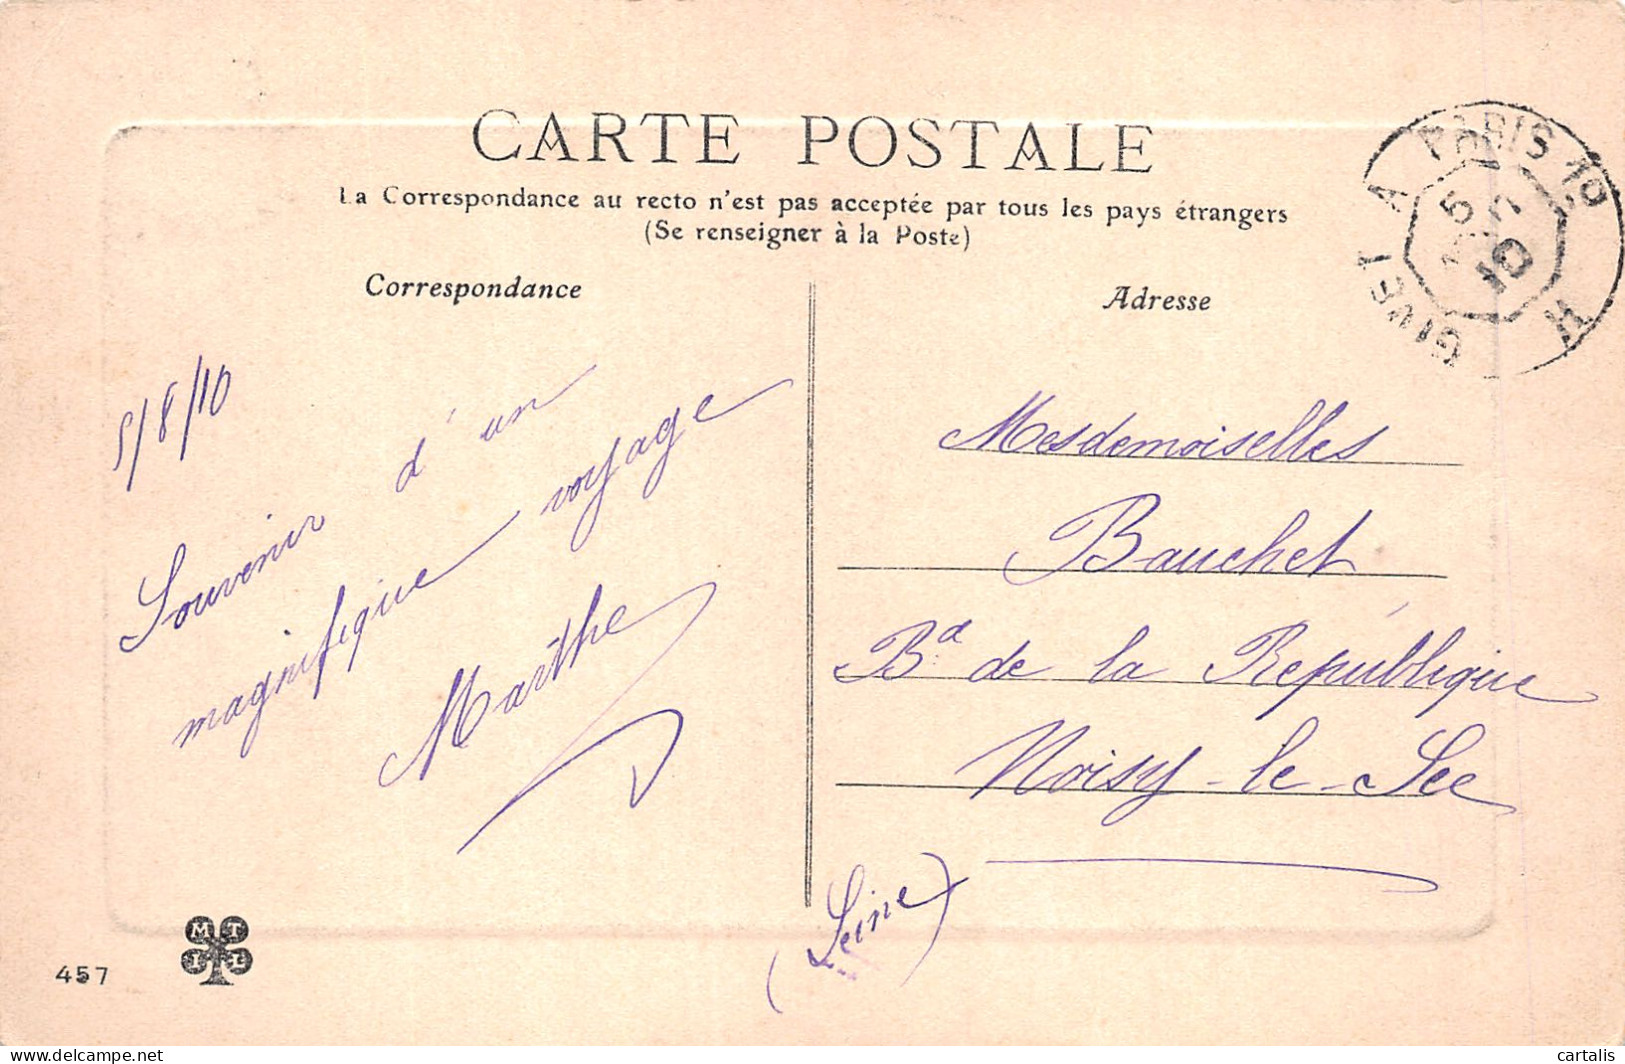 CARTE POSTALE
La Correspondance au recto n'est pas acceptée par tous les pays étrangers
(Se renseigner à la Poste)
Correspondance
Adresse
GIVET A PARIS 1º
5
10
5/8/10
Souvenir d'un
magnifique voyage
Marthe
Mesdemoiselles
Bauchet
Bd de la République
Noisy-le-Sec
(Seine)
MTIL
457
delcampe.net
cartalis